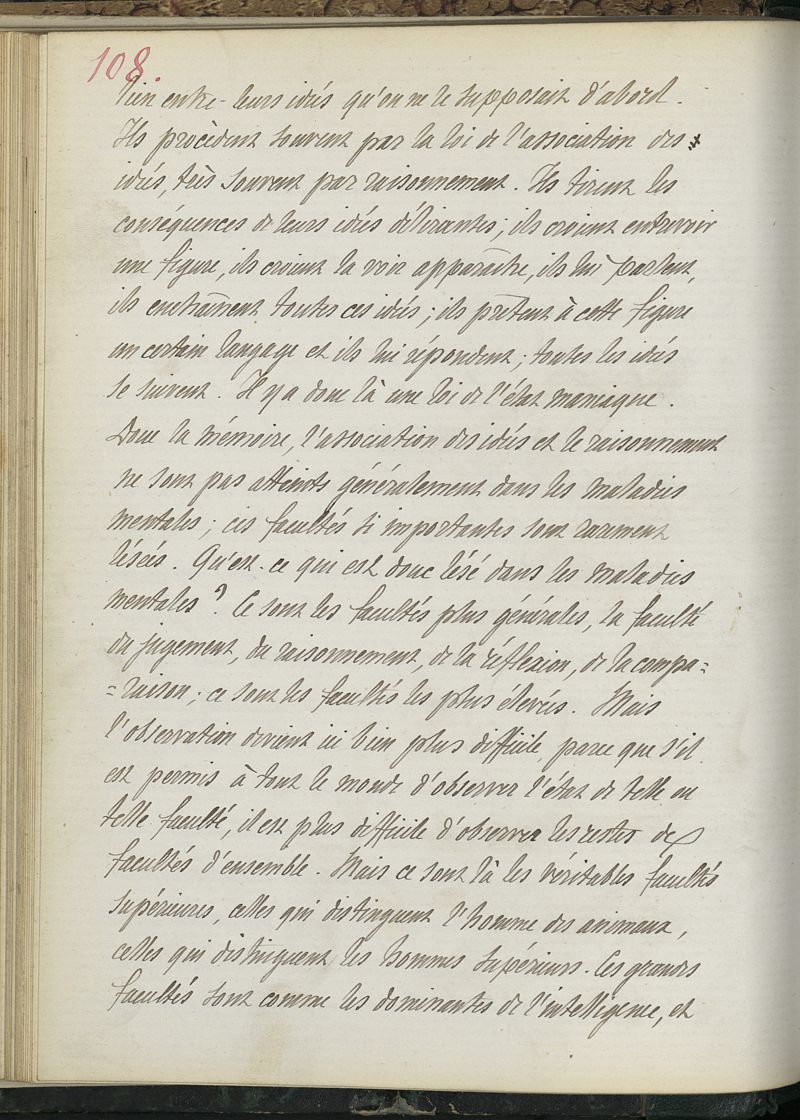 108.
lien entre leurs idées qu'on ne le supposait d'abord.
Ils procèdent souvent par la loi de l'association des
idées, très souvent par raisonnement. Ils tirent les
conséquences de leurs idées délirantes; ils croient entrevoir
une figure, ils croient la voir apparaître, ils lui parlent,
ils enchaînent toutes ces idées; ils prêtent à cette figure
un certain langage et ils lui répondent; toutes les idées
se suivent. Il y a donc là une loi de l'état maniaque.
Donc la mémoire, l'association des idées et le raisonnement
ne sont pas atteints généralement dans les maladies
mentales; ces facultés si importantes sont rarement
lésées. Qu'est-ce qui est donc lésé dans les maladies
mentales? Ce sont les facultés plus générales, la faculté
du jugement, du raisonnement, de la réflexion, de la compa=
=raison; ce sont les facultés les plus élevées. Mais
l'observation devient ici bien plus difficile, parce que s'il
est permis à tout le monde d'observer l'état de telle ou
telle faculté, il est plus difficile d'observer les restes des
facultés d'ensemble. Mais ce sont là les véritables facultés
supérieures, celles qui distinguent l'homme des animaux,
celles qui distinguent les hommes supérieurs. Ces grandes
facultés sont comme les dominantes de l'intelligence, et